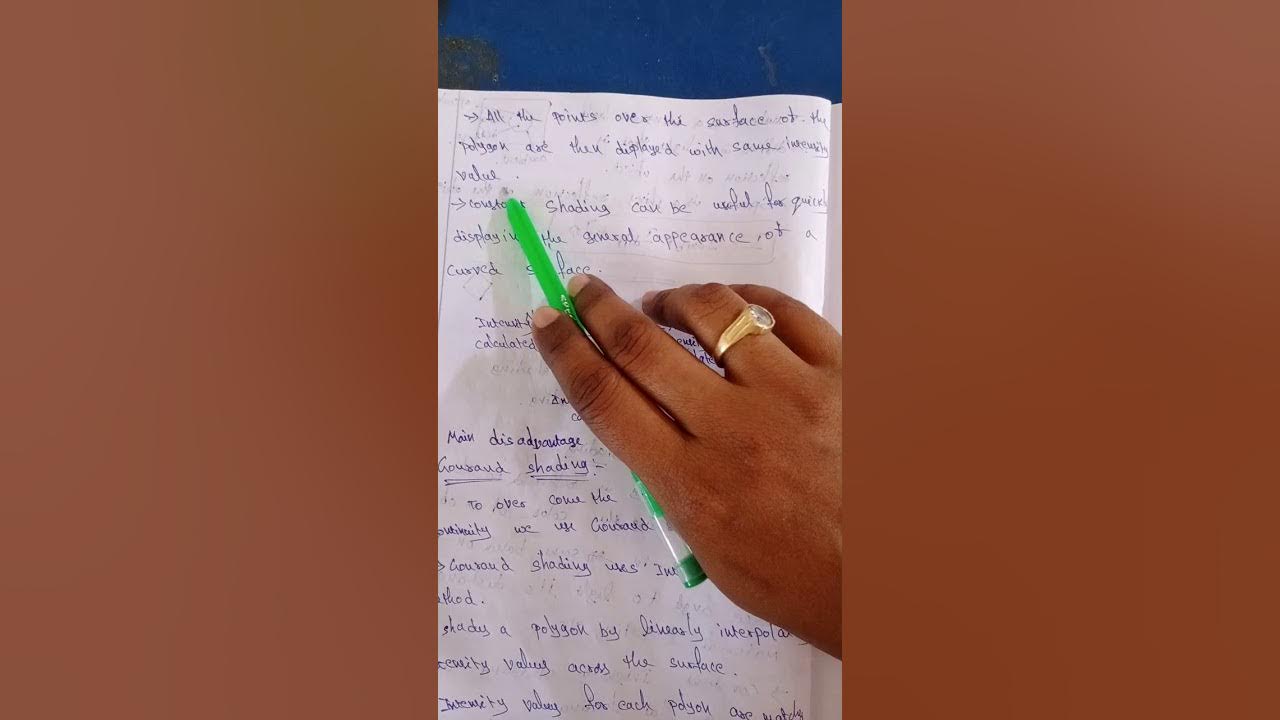 → All the points over the surface of the
polygon are then displayed with same intensity
value.
→ constant shading can be useful for quickly
displayin the general appearance, of a
curved s face.
Intensity
calculated
Main disadvantage
Gouraud shading:-
To over come the
we use Gouraud
> Gouraud shading uses Int
thod.
shades a polygon by linearly interpolating
tensity values across the surface.
Intensity value for each polyon are match